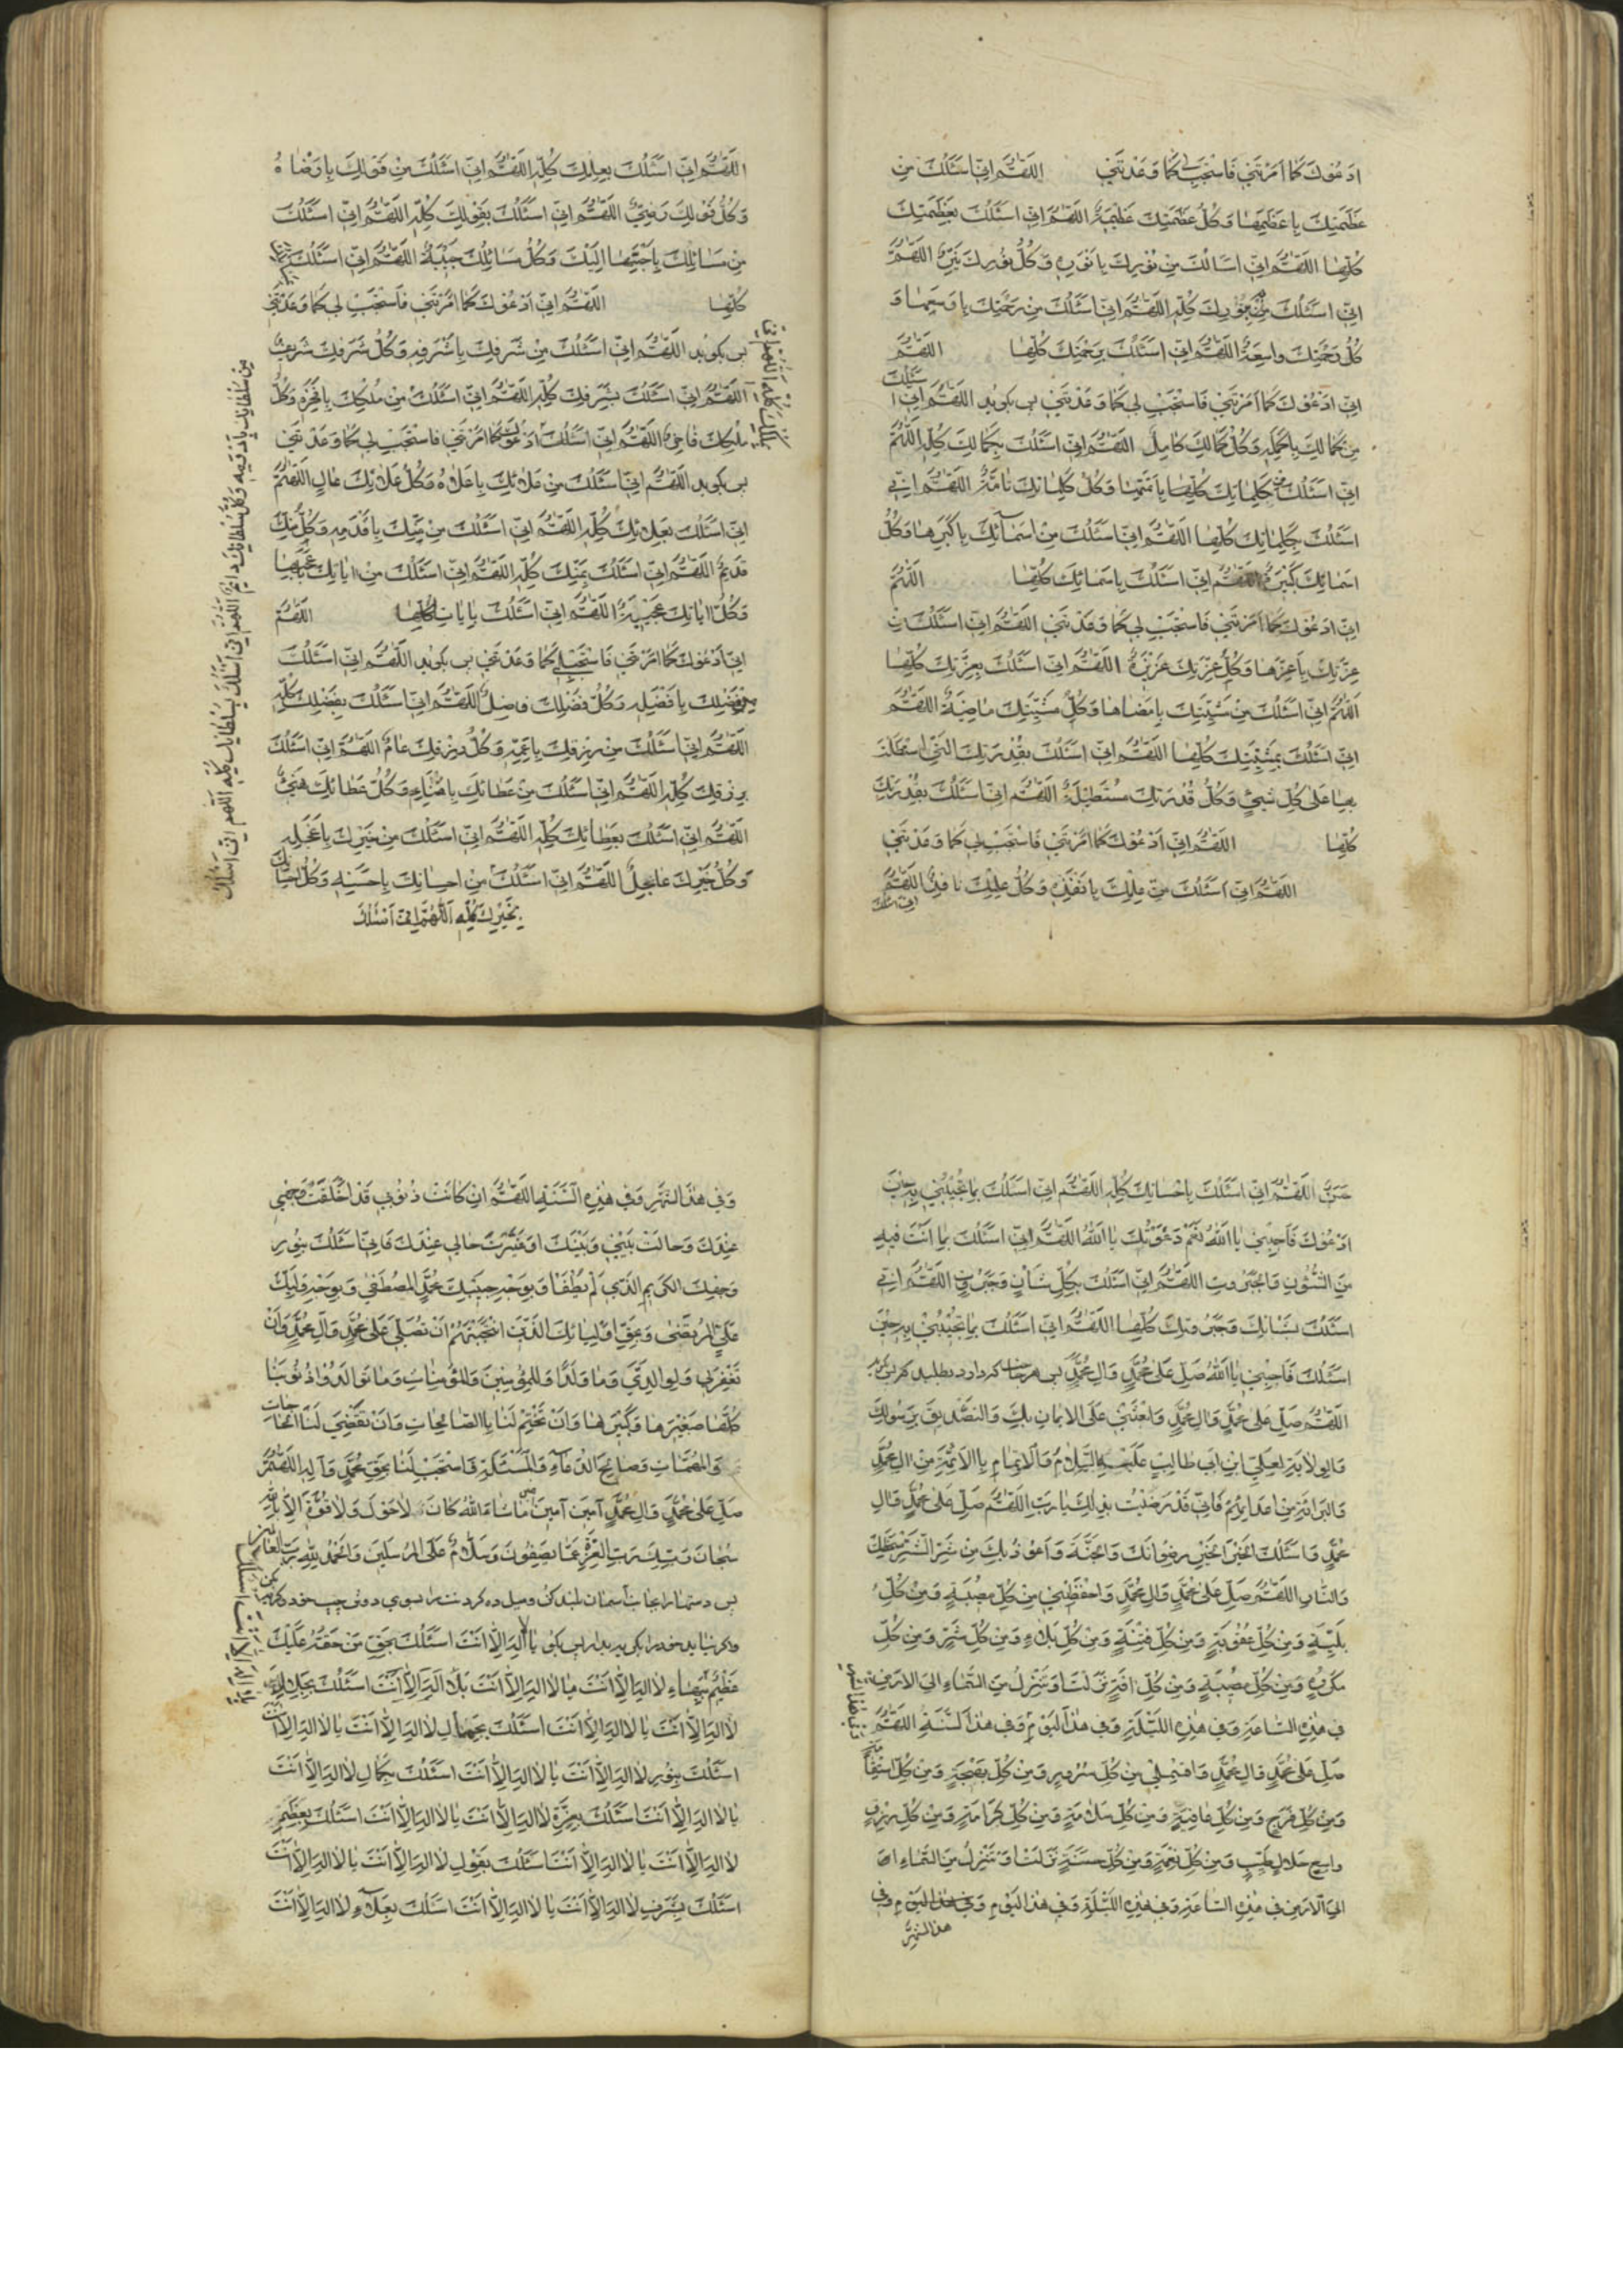 ادعوك كما امرتني فاستجب لي كما وعدتني اللهم اني اسئلك من
عظمتك باعظمها وكل عظمتك عظيمة اللهم اني اسئلك بعظمتك
كلها اللهم اني اسالك من نورك بانوره وكل نورك نير اللهم
اني اسئلك بنورك كله اللهم اني اسئلك من رحمتك باوسعها و
كل رحمتك واسعة اللهم اني اسئلك برحمتك كلها اللهم
اني ادعوك كما امرتني فاستجب لي كما وعدتني پس بكويد اللهم اني اسئلك
من كمالك باكمله وكل كمالك كامل اللهم اني اسئلك بكمالك كله اللهم
اني اسئلك من كلماتك كلها باتمها وكل كلماتك تامة اللهم اني
اسئلك بكلماتك كلها اللهم اني اسئلك من اسمائك باكبرها وكل
اسمائك كبيرة اللهم اني اسئلك باسمائك كلها اللهم
اني ادعوك كما امرتني فاستجب لي كما وعدتني اللهم اني اسئلك من
عزتك باعزها وكل عزتك عزيزة اللهم اني اسئلك بعزتك كلها
اللهم اني اسئلك من مشيتك بامضاها وكل مشيتك ماضية اللهم
اني اسئلك بمشيتك كلها اللهم اني اسئلك بقدرتك التي استطلت
بها على كل شيئ وكل قدرتك مستطيلة اللهم اني اسئلك بقدرتك
كلها اللهم اني ادعوك كما امرتني فاستجب لي كما وعدتني
اللهم اني اسئلك من علمك بانفذه وكل علمك نافذ اللهم
اني اسئلك
اللهم اني اسئلك بعلمك كله اللهم اني اسئلك من قولك بارضاه
وكل قولك رضي اللهم اني اسئلك بقولك كله اللهم اني اسئلك
من مسائلك باحبها اليك وكل مسائلك حبيبة اللهم اني اسئلك بمسائلك
كلها اللهم اني ادعوك كما امرتني فاستجب لي كما وعدتني
پس بكويد اللهم اني اسئلك من شرفك باشرفه وكل شرفك شريف
اللهم اني اسئلك بشرفك كله اللهم اني اسئلك من ملكك بافخره وكل
ملكك فاخر اللهم اني اسئلك ادعوك كما امرتني فاستجب لي كما وعدتني
پس بكويد اللهم اني اسئلك من علائك باعلاه وكل علائك عال اللهم
اني اسئلك بعلائك كله اللهم اني اسئلك من منك باقدمه وكل منك
قديم اللهم اني اسئلك بمنك كله اللهم اني اسئلك من اياتك باعجبها
وكل اياتك عجيبة اللهم اني اسئلك باياتك كلها اللهم
اني ادعوك كما امرتني فاستجب لي كما وعدتني پس بكويد اللهم اني اسئلك
من فضلك بافضله وكل فضلك فاضل اللهم اني اسئلك بفضلك كله
اللهم اني اسئلك من رزقك باعمه وكل رزقك عام اللهم اني اسئلك
برزقك كله اللهم اني اسئلك من عطائك باهناه وكل عطائك هنيئ
اللهم اني اسئلك بعطائك كله اللهم اني اسئلك من خيرك باعجله
وكل خيرك عاجل اللهم اني اسئلك من احسانك باحسنه وكل احسانك
بخيرك كله اللهم اني اسئلك
بملكك كله اللهم اني
من سلطانك بادومه وكل سلطانك دائم اللهم اني اسئلك بسلطانك كله اللهم اني اسئلك
حسن اللهم اني اسئلك باحسانك كله اللهم اني اسئلك بما تجيبني به حين
ادعوك فاجبني يا الله نعم دعوتك يا الله اللهم اني اسئلك بما انت فيه
من الشئون والجبروت اللهم اني اسئلك بكل شان وجبروت اللهم اني
اسئلك بشانك وجبروتك كلها اللهم اني اسئلك بما تجيبني به حين
اسئلك فاجبني يا الله صل على محمد وال محمد پس هر حاجت كه دارد بطلبد
اللهم صل على محمد وال محمد وابعثني على الايمان بك والتصديق برسولك
والولاية لعلي ابن ابي طالب عليه السلام والايتمام بالائمة من ال محمد
والبرائة من اعدائهم فاني قد رضيت بذلك يا رب اللهم صل على محمد وال
محمد واسئلك الخير الخير رضوانك والجنة واعوذ بك من شر الشر سخطك
والنار اللهم صل على محمد وال محمد واحفظني من كل مصيبة ومن كل
بلية ومن كل عقوبة ومن كل فتنة ومن كل بلاء ومن كل شر ومن كل
مكروه ومن كل مصيبة ومن كل افة نزلت او تنزل من السماء الى الارض
في هذه الساعة وفي هذه الليلة وفي هذا اليوم وفي هذا السنة اللهم
صل على محمد وال محمد واقسم لي من كل سرور ومن كل بهجة ومن كل استقامة
ومن كل فرج ومن كل عافية ومن كل سلامة ومن كل كرامة ومن كل رزق
واسع حلال طيب ومن كل نعمة ومن كل حسنة نزلت او تنزل من السماء
الى الارض في هذه الساعة وفي هذه الليلة وفي هذا اليوم وفي
هذا الشهر
وفي هذا الشهر وفي هذه السنة اللهم ان كانت ذنوبي قد اخلقت وجهي
عندك وحالت بيني وبينك او غيرت حالي عندك فاني اسئلك بنور
وجهك الكريم الذي لم يطفا وبوجه حبيبك محمد المصطفى وبوجه وليك
علي المرتضى وبحق اوليائك الذين انتجبتهم ان تصلي على محمد وال محمد وان
تغفر لي ولوالدي وما ولدا وللمؤمنين والمؤمنات وما توالدوا ذنوبنا
كلها صغيرها وكبيرها وان تختم لنا بالصالحات وان تقضي لنا الحاجات
والمهمات وصالح الدعاء والمسئلة فاستجب لنا بحق محمد وآله اللهم
صل على محمد وال محمد آمين آمين ما شاء الله كان لا حول ولا قوة الا بالله
سبحان ربك رب العزة عما يصفون وسلام على المرسلين والحمد لله رب العالمين
پس دستها را بجانب آسمان بلند كن وميل ده كردنت را بسوي دوش چپ خود وكريه كن
واكر نيايد خود را بكريه بدار پس بكو يا لا اله الا انت اسئلك بحق من حقه عليك
عظيم ببهاء لا اله الا انت يا لا اله الا انت اسئلك بجلال
لا اله الا انت يا لا اله الا انت اسئلك بجمال لا اله الا انت يا لا اله الا انت
اسئلك بنور لا اله الا انت يا لا اله الا انت اسئلك بكمال لا اله الا انت
يا لا اله الا انت اسئلك بعزة لا اله الا انت يا لا اله الا انت اسئلك بعظم
لا اله الا انت يا لا اله الا انت اسئلك بقول لا اله الا انت يا لا اله الا انت
اسئلك بشرف لا اله الا انت يا لا اله الا انت اسئلك بعلاء لا اله الا انت